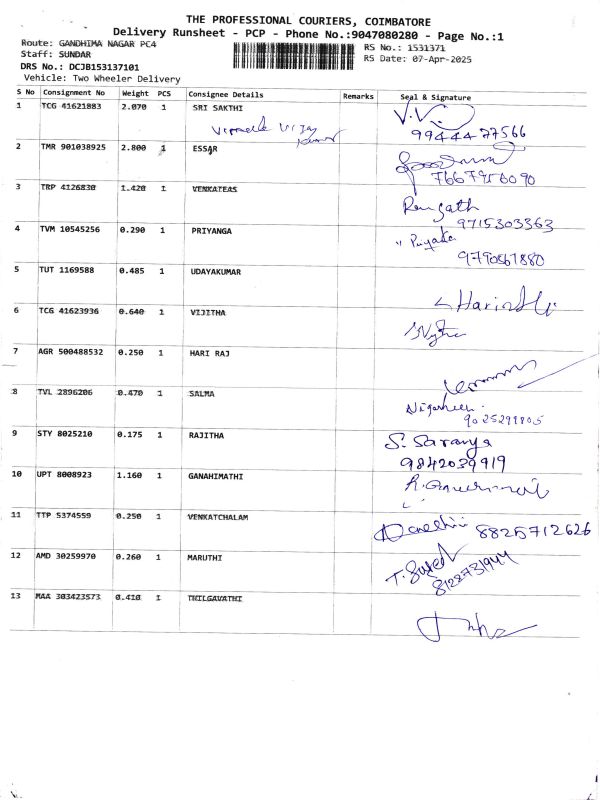 THE PROFESSIONAL COURIERS, COIMBATORE
Delivery Runsheet - PCP - Phone No.:9047080280 - Page No.:1
Route: GANDHIMA NAGAR PC4
Staff: SUNDAR
DRS No.: DCJB153137101
Vehicle: Two Wheeler Delivery
RS No.: 1531371
RS Date: 07-Apr-2025
S No Consignment No Weight PCS Consignee Details Remarks Seal & Signature
1 TCG 41621883 2.070 1 SRI SAKTHI
Vijay
9944427566
2 TMR 901038925 2.800 1 ESSAR
3 TRP 4126830 1.420 1 VENKATEAS
Rangath
9715303363
4 TVM 10545256 0.290 1 PRIYANGA
Priyanka
5 TUT 1169588 0.485 1 UDAYAKUMAR
6 TCG 41623936 0.640 1 VIJITHA
7 AGR 500488532 0.250 1 HARI RAJ
8 TVL 2896206 0.470 1 SALMA
9 STY 8025210 0.175 1 RAJITHA
S. Saranya
9842039919
10 UPT 8008923 1.160 1 GANAHIMATHI
11 TTP 5374559 0.250 1 VENKATCHALAM
8825712626
12 AMD 30259970 0.260 1 MARUTHI
8122731944
13 MAA 303423573 0.410 1 THILGAVATHI